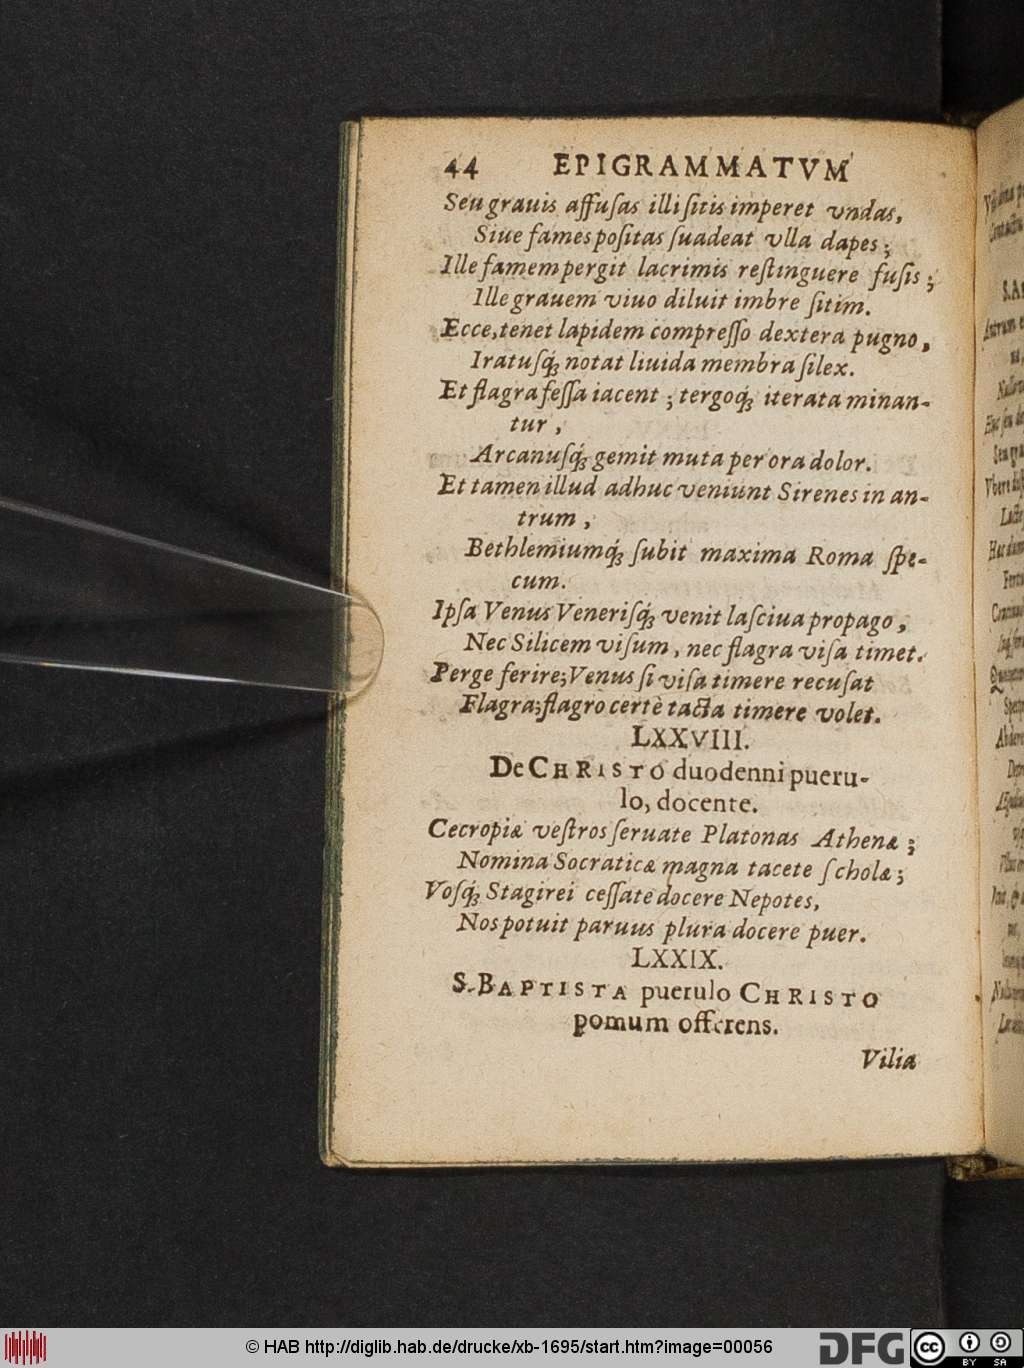 44 EPIGRAMMATVM
Seu grauis affuſas illi ſitis imperet vndas,
Siue fames poſitas ſuadeat vlla dapes;
Ille famem pergit lacrimis reſtinguere fuſis;
Ille grauem viuo diluit imbre ſitim.
Ecce, tenet lapidem compreſſo dextera pugno,
Iratuſq́ꝫ notat liuida membra ſilex.
Et flagra feſſa iacent; tergoq́ꝫ iterata minan-
tur,
Arcanuſq́ꝫ gemit muta per ora dolor.
Et tamen illud adhuc veniunt Sirenes in an-
trum,
Bethlemiumq́ꝫ ſubit maxima Roma ſpe-
cum.
Ipſa Venus Veneriſq́ꝫ venit laſciua propago,
Nec Silicem viſum, nec flagra viſa timet.
Perge ferire; Venus ſi viſa timere recuſat
Flagra; flagro certè tacta timere volet.
LXXVIII.
De CHRISTO duodenni pueru-
lo, docente.
Cecropiæ veſtros ſeruate Platonas Athenæ;
Nomina Socraticæ magna tacete ſcholæ;
Voſq́ꝫ Stagirei ceſſate docere Nepotes,
Nos potuit paruus plura docere puer.
LXXIX.
S. BAPTISTA puerulo CHRISTO
pomum offerens.
Vilia
© HAB http://diglib.hab.de/drucke/xb-1695/start.htm?image=00056
DFG
cc
BY SA